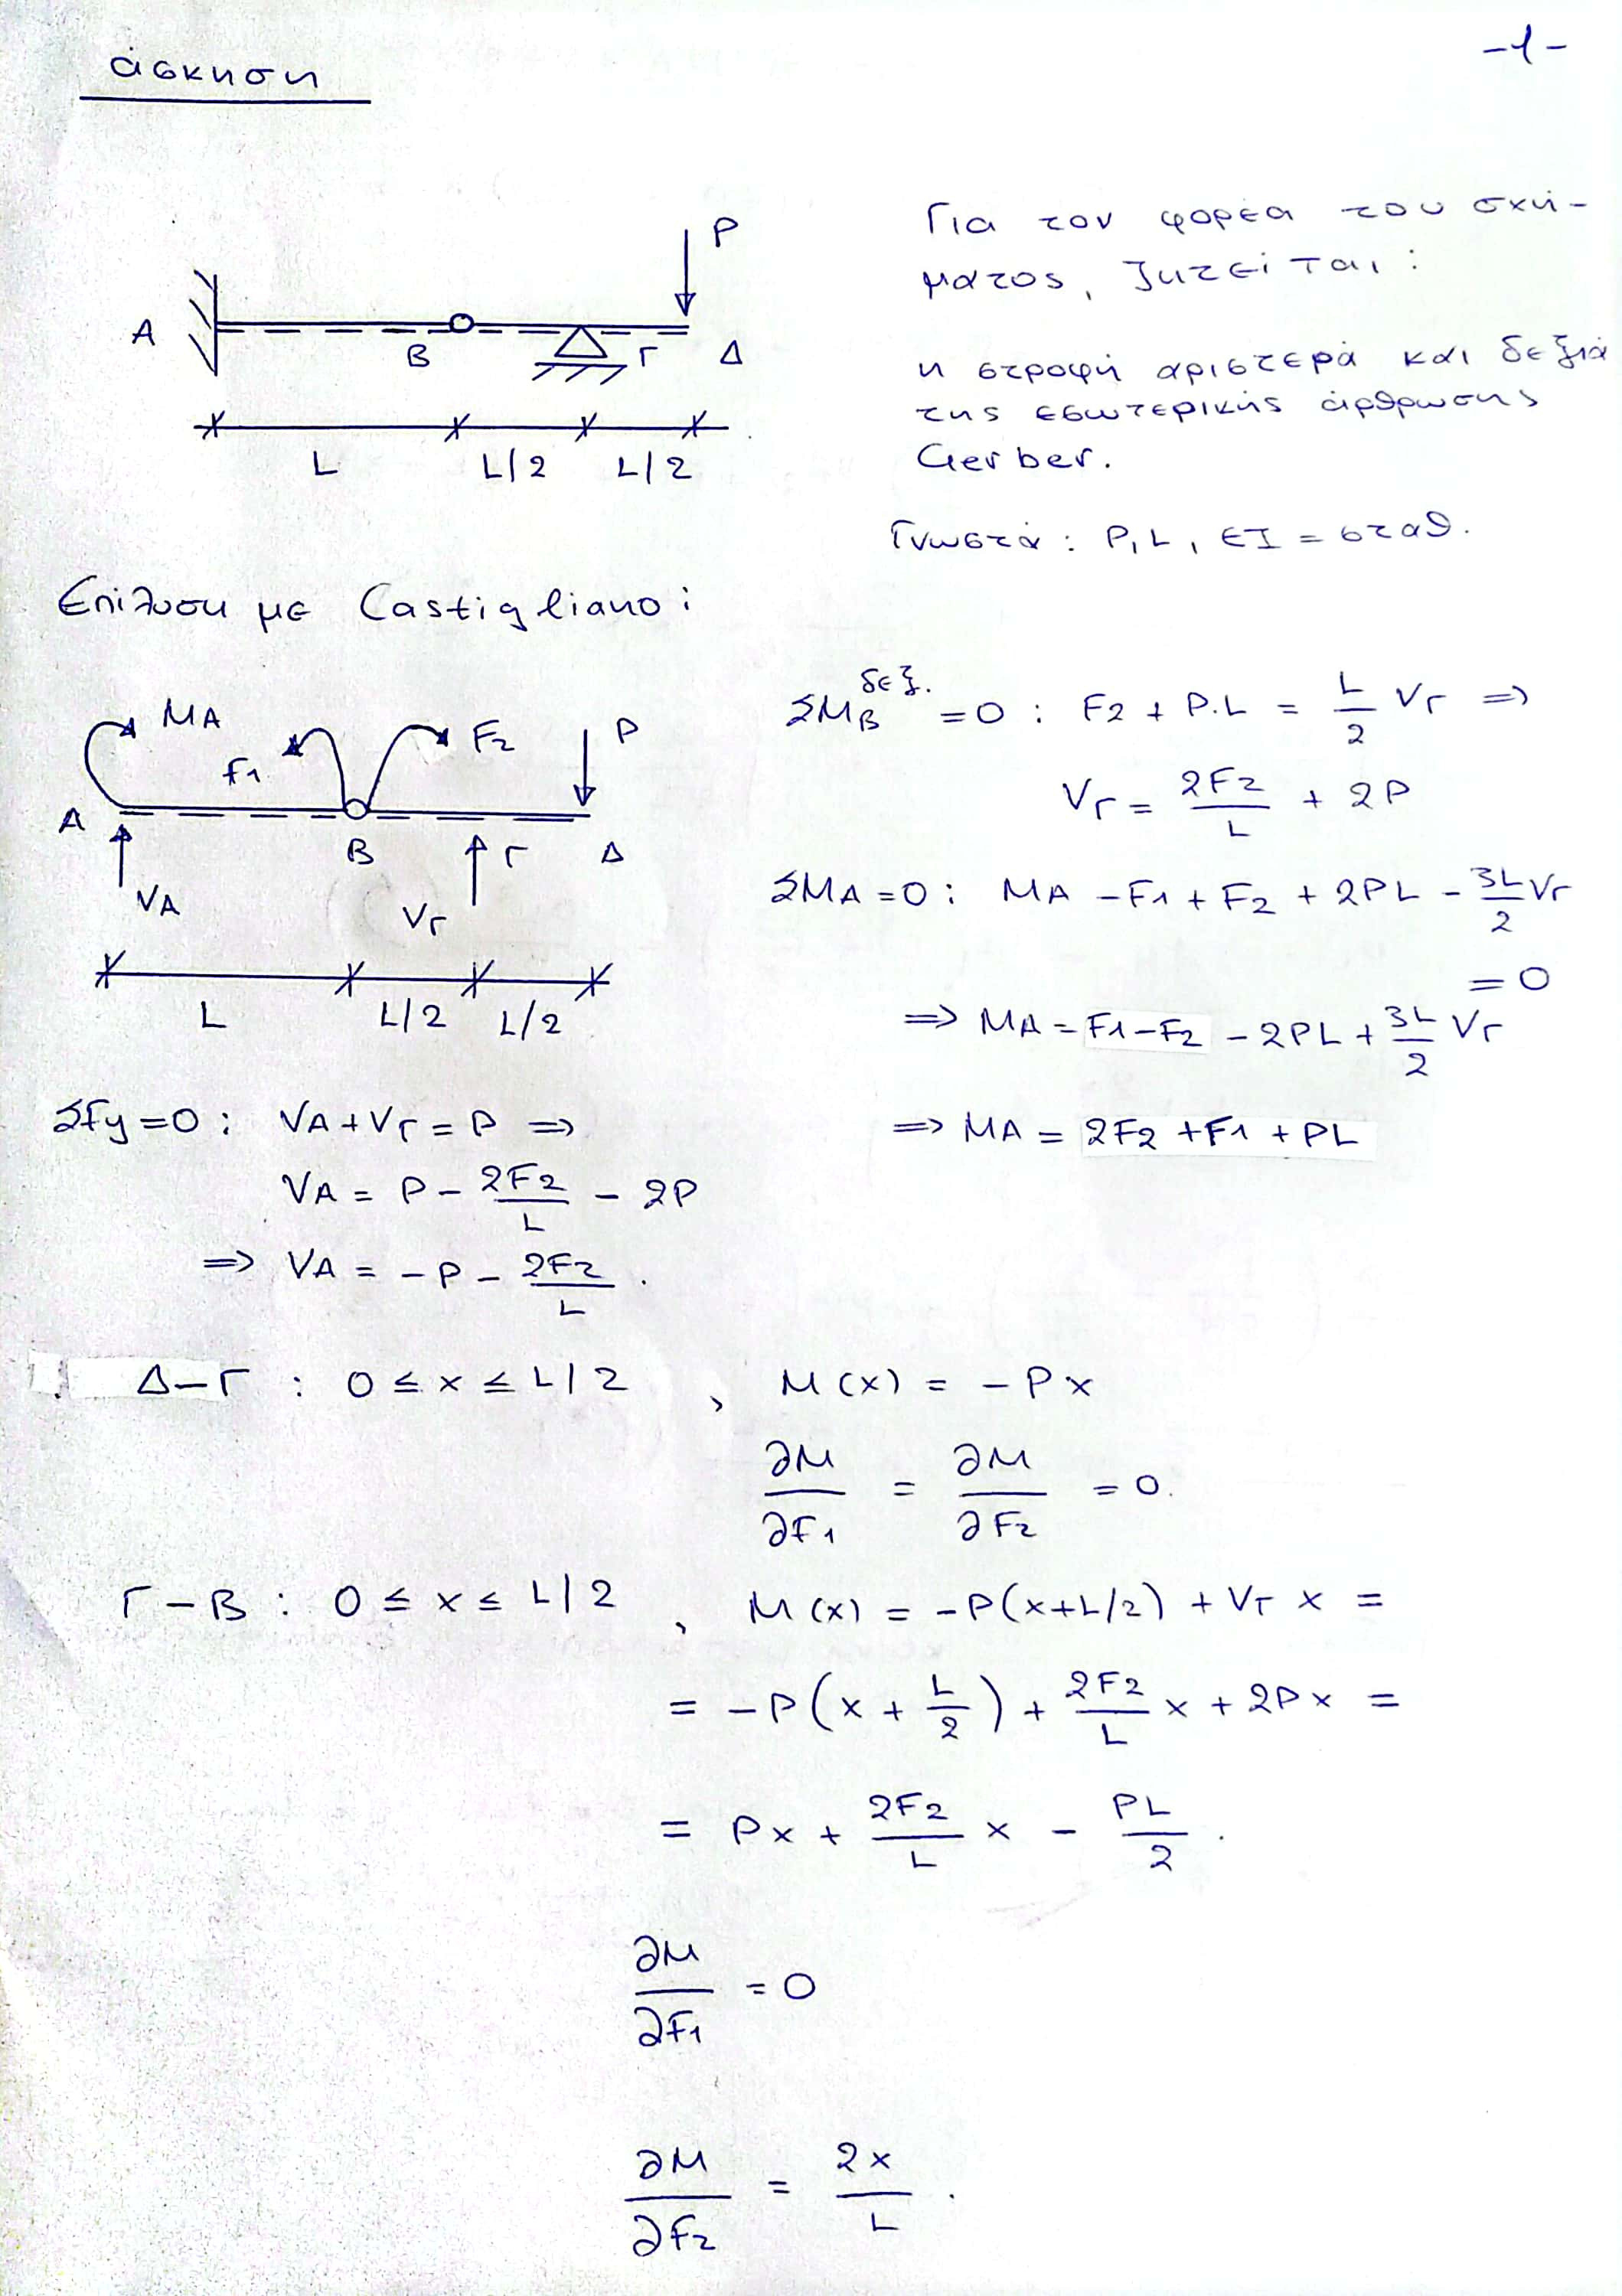 -1-
άσκηση
Για τον φορέα του σχή-
ματος, ζητείται:
η στροφή αριστερά και δεξιά
της εσωτερικής άρθρωσης
Gerber.
Γνωστά: P, L, EI = σταθ.
P
A B Γ Δ
L L/2 L/2
Επίλυση με Castigliano:
MA F1 F2 P
A B Γ Δ
VA VΓ
L L/2 L/2
ΣMB δεξ. = 0 : F2 + P.L = L/2 VΓ =>
VΓ = 2F2/L + 2P
ΣMA = 0 : MA - F1 + F2 + 2PL - 3L/2 VΓ
= 0
=> MA = F1 - F2 - 2PL + 3L/2 VΓ
=> MA = 2F2 + F1 + PL
ΣFy = 0 : VA + VΓ = P =>
VA = P - 2F2/L - 2P
=> VA = -P - 2F2/L .
Δ-Γ : 0 ≤ x ≤ L/2 , M(x) = -Px
∂M/∂F1 = ∂M/∂F2 = 0.
Γ-B : 0 ≤ x ≤ L/2 , M(x) = -P(x+L/2) + VΓ x =
= -P(x + L/2) + 2F2/L x + 2Px =
= Px + 2F2/L x - PL/2 .
∂M/∂F1 = 0
∂M/∂F2 = 2x/L .